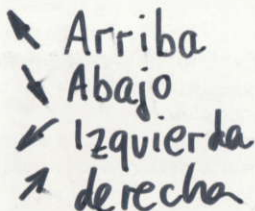 Arriba
Abajo
Izquierda
derecha